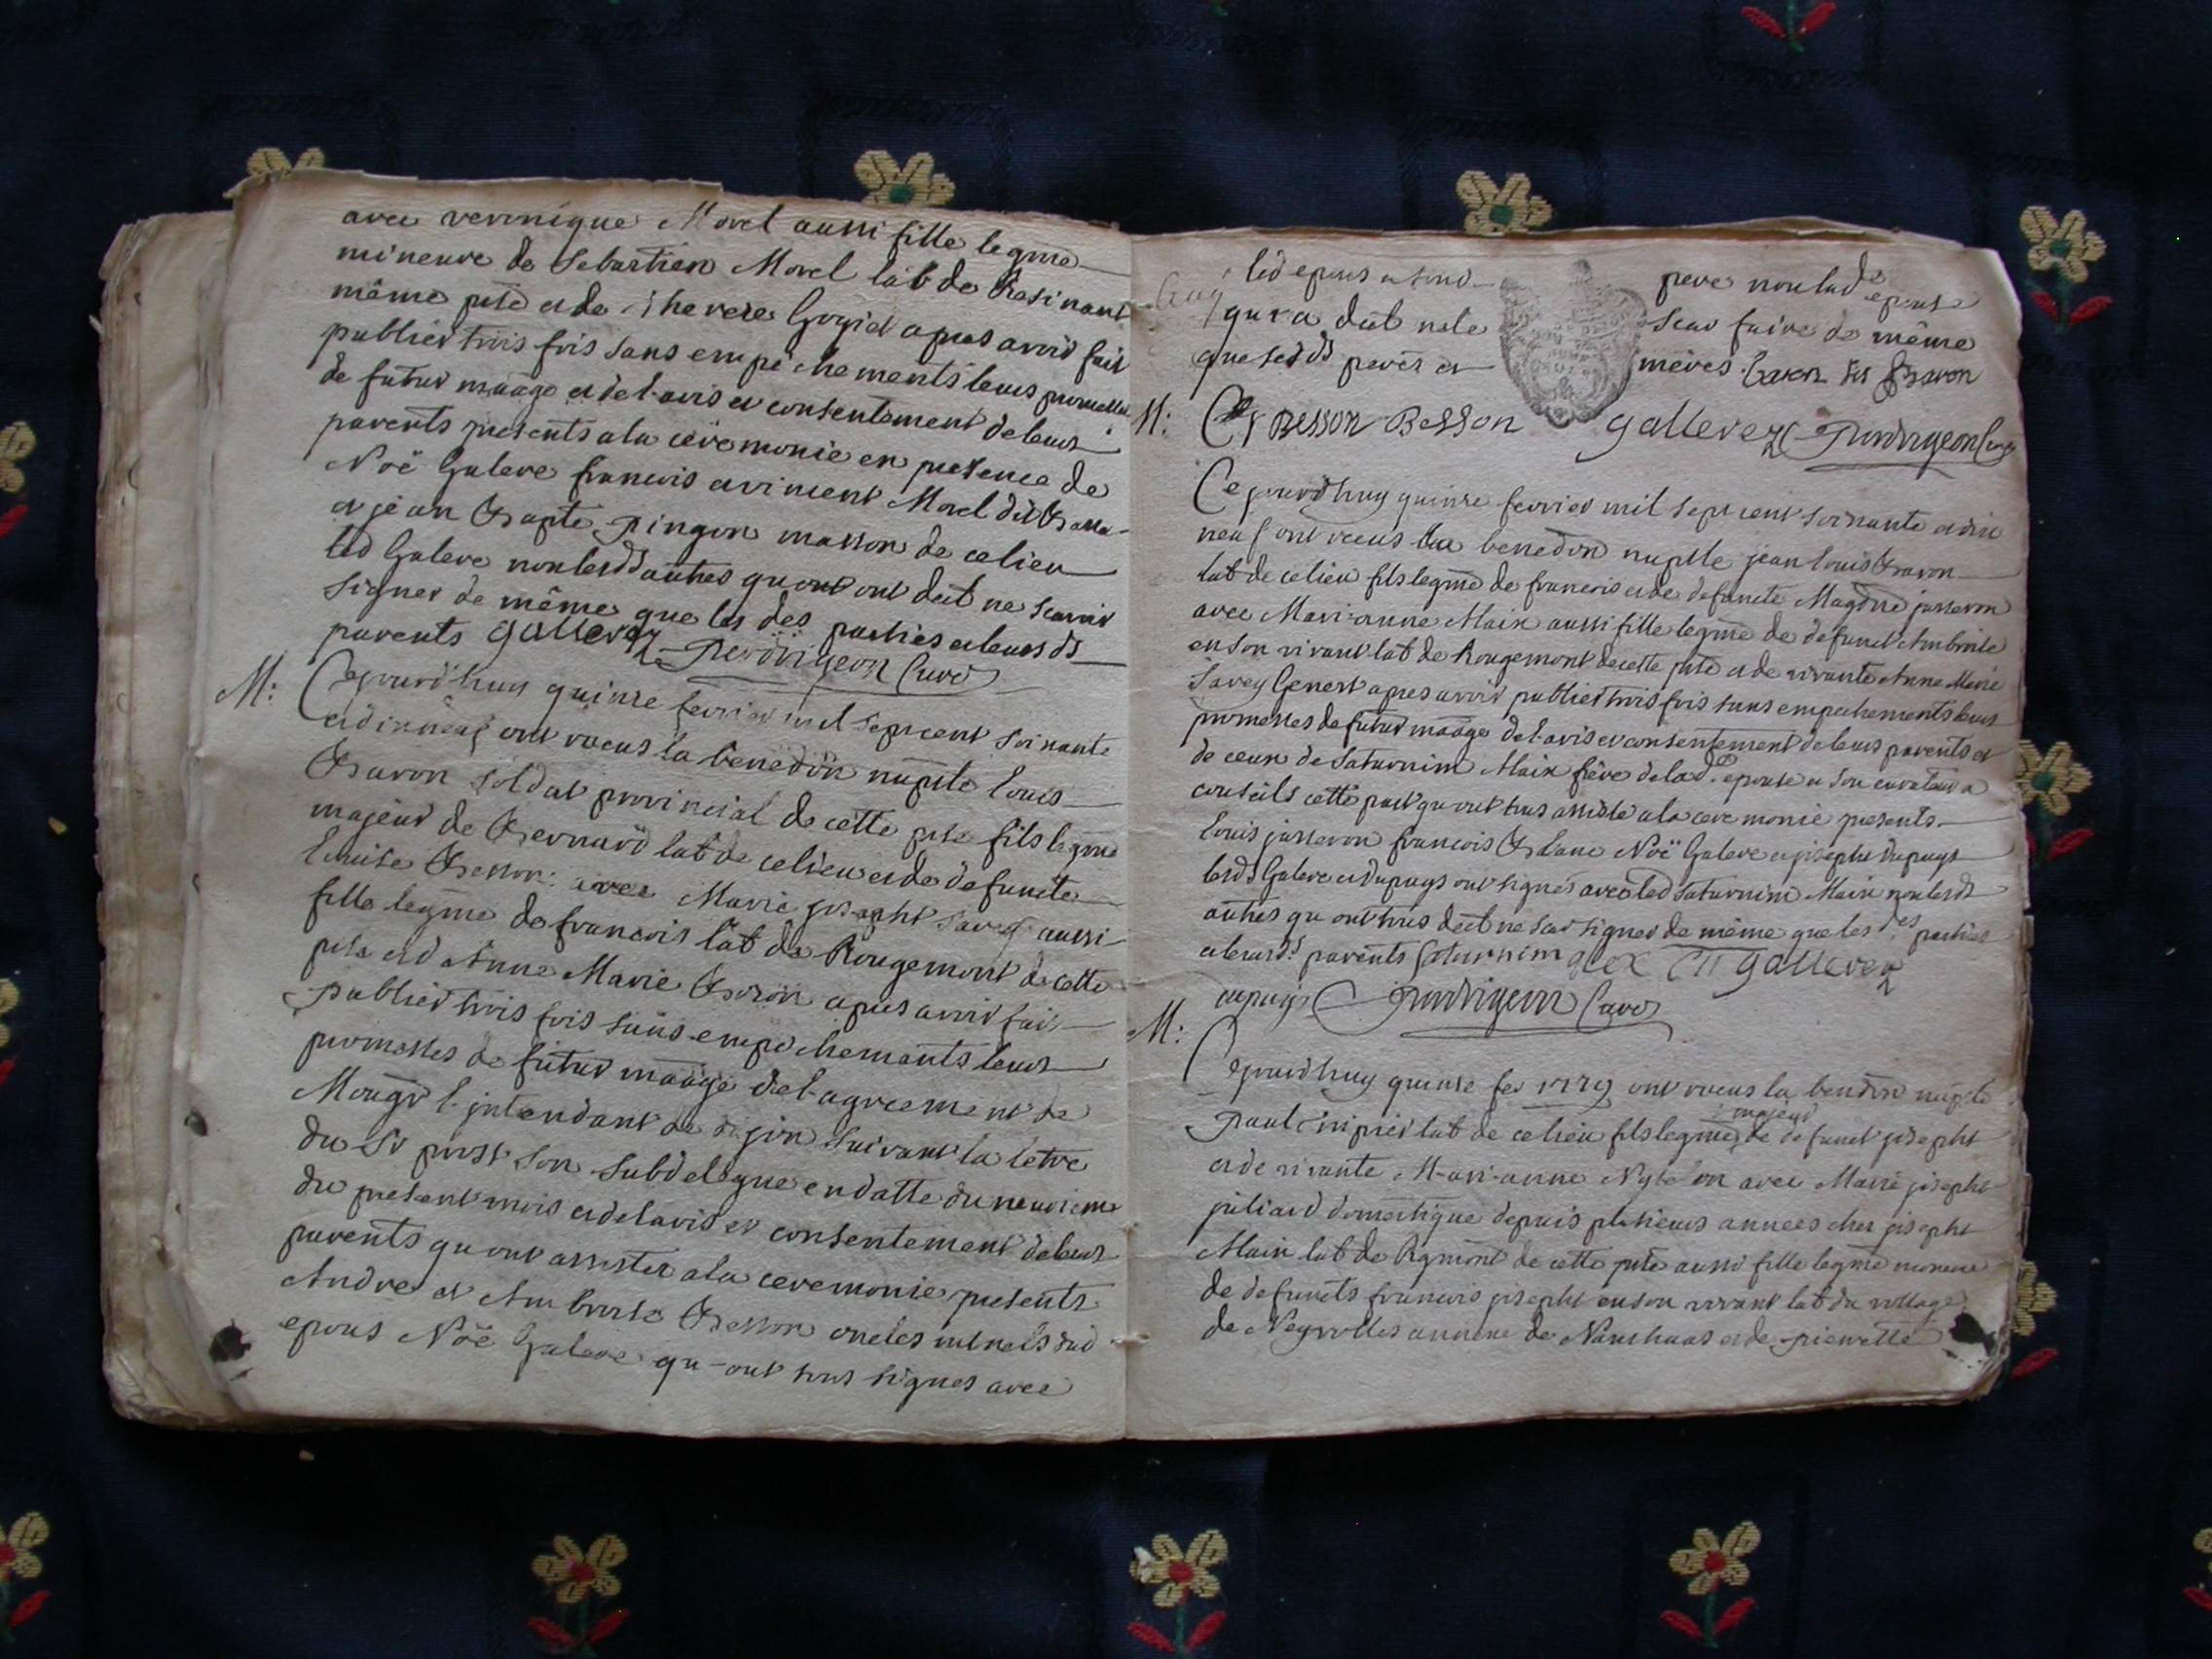 avec veronique Morel aussi fille legme
mineure de Sebastien Morel lab de Rasinant
même psse et de therese Gogid apres avoir fait
publier trois fois sans empêchements leurs promesses
de futur maage et de l'avis et consentement de leurs
parents presents a la ceremonie en presence de
Noë Galere francois et vincent Morel dit
et jean Bapte Pingon masson de ce lieu
led Galere non lesds autres qu ont ont deêt ne scavoir
signer de même que les des parties et leurs ds
parents gallerez Perdrigeon Curé
M: Cejourd'huy quinse fevrier mil sept cent soixante
et dixneuf ont receus la benedon nuptle louis
Baron soldat provincial de cette psse fils legme
majeur de Bernard lab de ce lieu et de defuncte
louise Besson: avec Marie joseph Savey aussi
fille legme de francois lab de Rougemont de cette
psse et d Anne Marie apres avoir fait
publier trois fois sans empêchements leurs
promesses de futur maage de l'agreement de
Mougr l'intendant de dijon suivant la lettre
du Sr son subdelegue en datte du neuvieme
du present mois et de lavis et consentement de leurs
parents qu ont assister a la ceremonie presents
Andre et Ambroise Besson oncles dud
epous Noë Galere qu-ont tous signes avec
led epous et son pere non lad epouse
qu a deêt ne le scav faire de même
que sesds peres et meres. Baron
M: Besson Besson gallerez Perdrigeon Curé
Cejourd'huy quinse fevrier mil sept cent soixante et dix
neuf ont receus la benedon nuptle jean louis Baron
lab de ce lieu fils legme de francois et de defuncte Magdne jusseron
avec Mari-anne Maix aussi fille legme de defunct Ambroise
en son vivant lab de Rougemont de cette psse et de vivante Anne Marie
Savey Genest apres avoir publier trois fois sans empechements leurs
promesses de futur maage de l'avis et consentement de leurs parents et
de ceux de Saturnim Maix frère de lad epouse et son curateur a
conseils cette part qu ont tous assisté a la ceremonie presents
louis jusseron francois Blanc Noë Galere et joseph dupuys
lesds Galere et dupuys ont signes avec led Saturnim Maix non lesds
autres qu ont tous deêt ne scav signer de même que les des parties
et leurs ds parents Saturnim gallerez
dupuys Perdrigeon Curé
M:
Cejourd'huy quinse fev 1779 ont receus la bendon nuptle
majeur
Paul lab de ce lieu fils legme de defunct joseph
et de vivante Mari-anne avec Marie joseph
juliard domestique depuis plusieurs annees cher joseph
Maix lab de Rgmont de cette psse aussi fille legme mineure
de defuncts francois joseph en son vivant lab du village
de Neyrolles annexe de Nanthuas et de pierrette